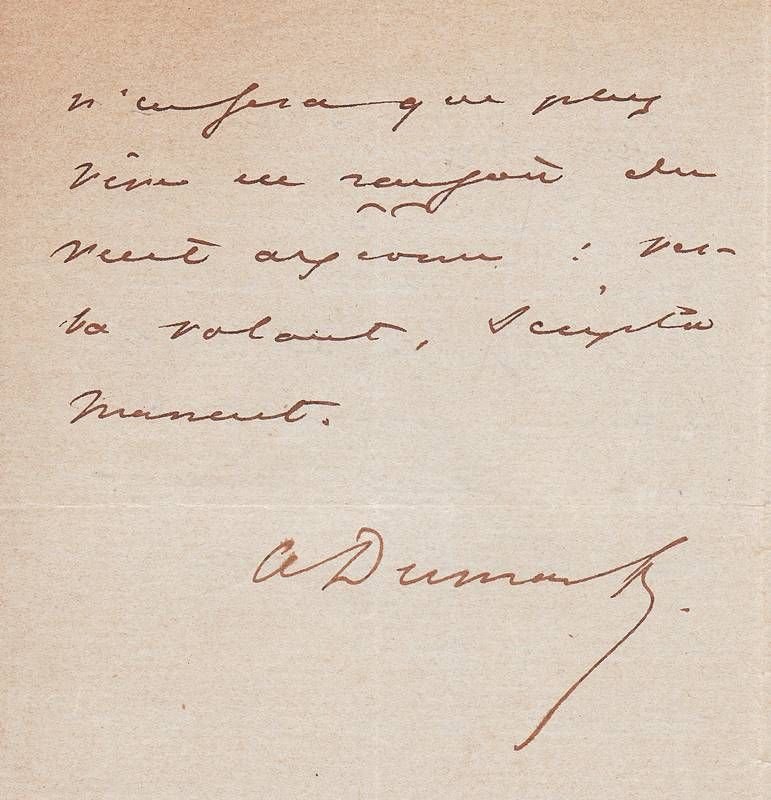 n'en sera que plus
vive en raison du
vieil axiome : ver-
ba volant, scripta
manent.
A Dumas f.